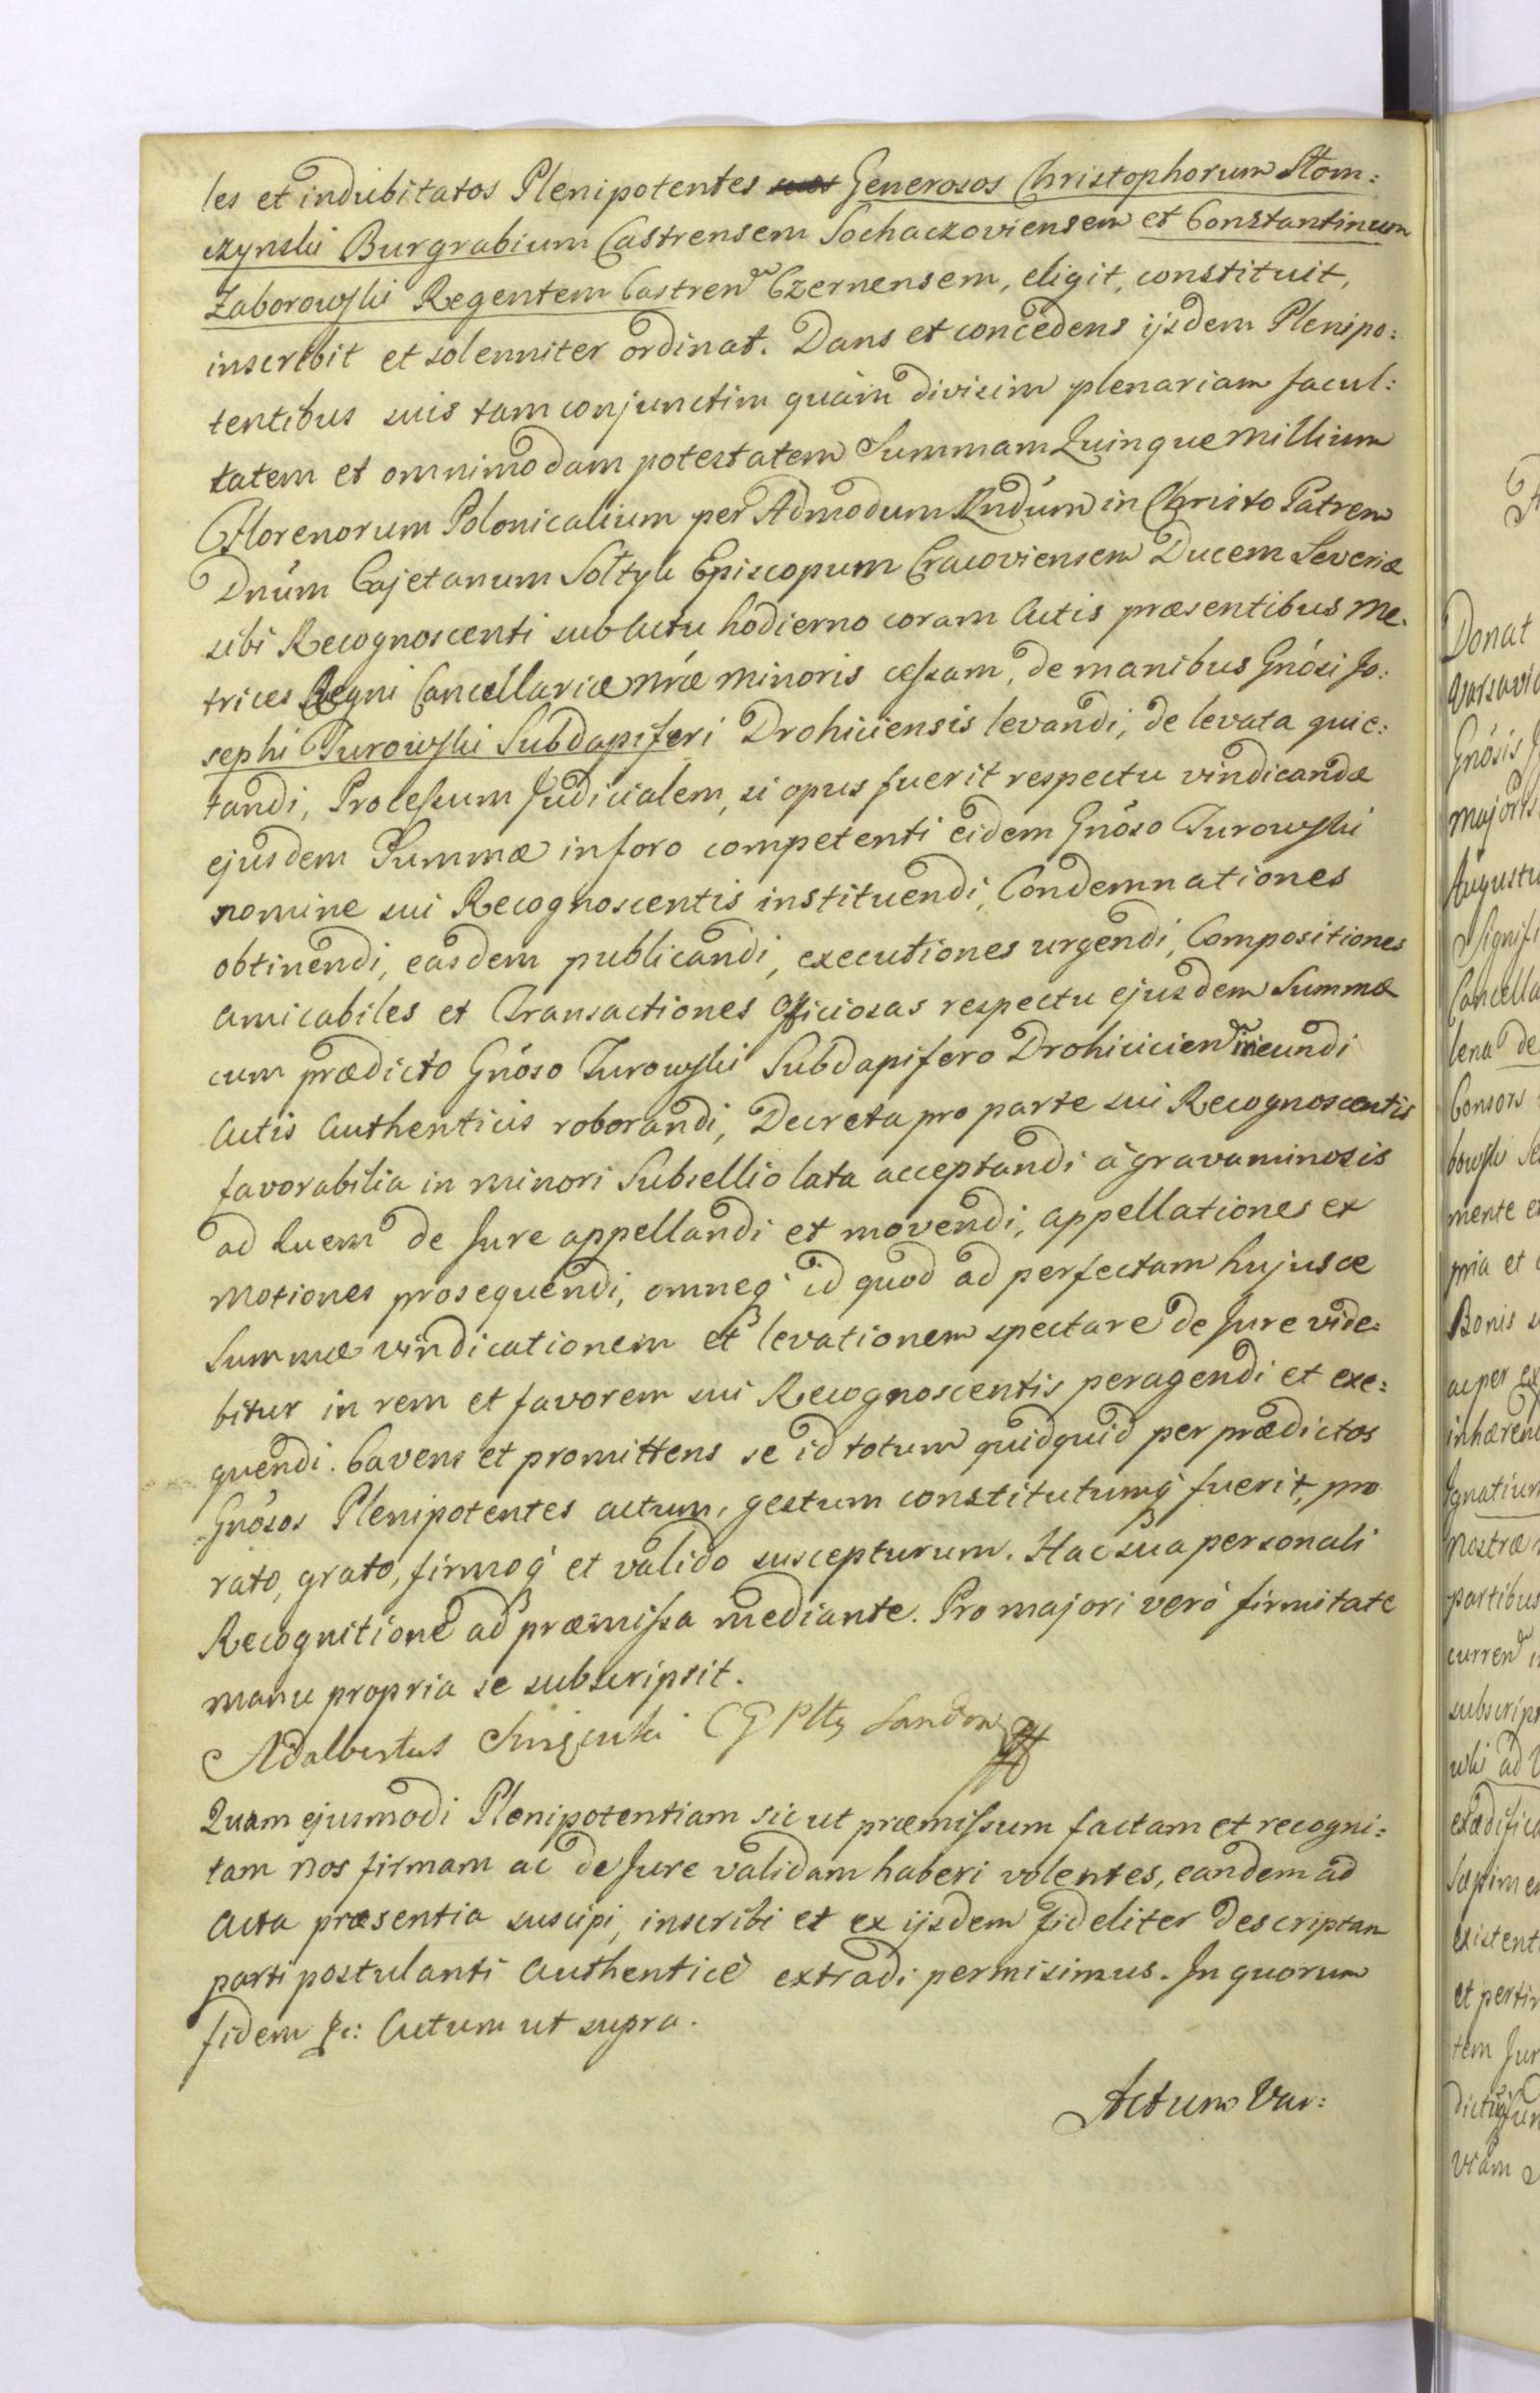 les et indubitatos Plenipotentes suos Generosos Christophorum Stom:
czynski Burgrabium Castrensem Sochaczoviensem et Constantinum
Zaborowski Regentem Castren Czernensem, eligit, constituit,
inscribit et solenniter ordinat. Dans et concedens ijsdem Plenipo:
tentibus suis tam conjunctim quàm divisim plenariam facul:
tatem et omnimodam potestatem Summam Quinque Millium
Florenorum Polonicalium per Admodum Rndum in Christo Patrem
Dnum Cajetanum Soltyk Episcopum Cracoviensem Ducem Severiæ
sibi Recognoscenti sub Actu hodierno coram Actis præsentibus Me.
trices Regni Cancellariæ nræ minoris cessam, de manibus Gnósi Jo:
sephi Turowski Subdapiferi Drohiciensis levandi, de levata quie:
tandi, Processum Judicialem, si opus fuerit respectu vindicandæ
ejusdem Summæ in foro competenti eidem Gnóso Turowski
nomine sui Recognoscentis instituendi, Condemnationes
obtinendi, easdem publicandi, executiones urgendi, Compositiones
amicabiles et Transactiones officiosas respectu ejusdem Summæ
cum prædicto Gnóso Turowski Subdapifero Drohicicien ineundi
Actis Authenticis roborandi, Decreta pro parte sui Recognoscentis
favorabilia in minori Subsellio lata acceptandi à gravaminosis
ad quem de Jure appellandi et movendi, appellationes et
motiones prosequendi, omneq id quod ad perfectam hujusce
Summæ vindicationem et levationem spectare de Jure vide:
bitur in rem et favorem sui Recognoscentis peragendi et exe:
quendi. Cavens et promittens se id totum quidquid per prædictos
Gnósos Plenipotentes actum, gestum constitutumq fuerit, pro
rato, grato, firmoq et valido suscepturum. Hac sua personali
Recognitione ad præmissa mediante. Pro majori verò firmitate
manu propria se subscripsit.
Adalbertus
Quam ejusmodi Plenipotentiam sic ut præmissum factam et recogni:
tam nos firmam ac de Jure validam haberi volentes, eandem ad
Acta præsentia suscipi, inscribi et ex ijsdem fideliter descriptam
parti postulanti authenticè extradi permisimus. In quorum
fidem &c: Actum ut supra.
Actum Var:
Donat
Gnósis
majoris
Augustu
Signifi
Cancella
lena de
Consors
mente e
pria et
Bonis
ac per ex
inhæren
Ignatium
nostræ
partibus
curren
subscrip
exædifica
existent
et pertin
tem Jur
viam